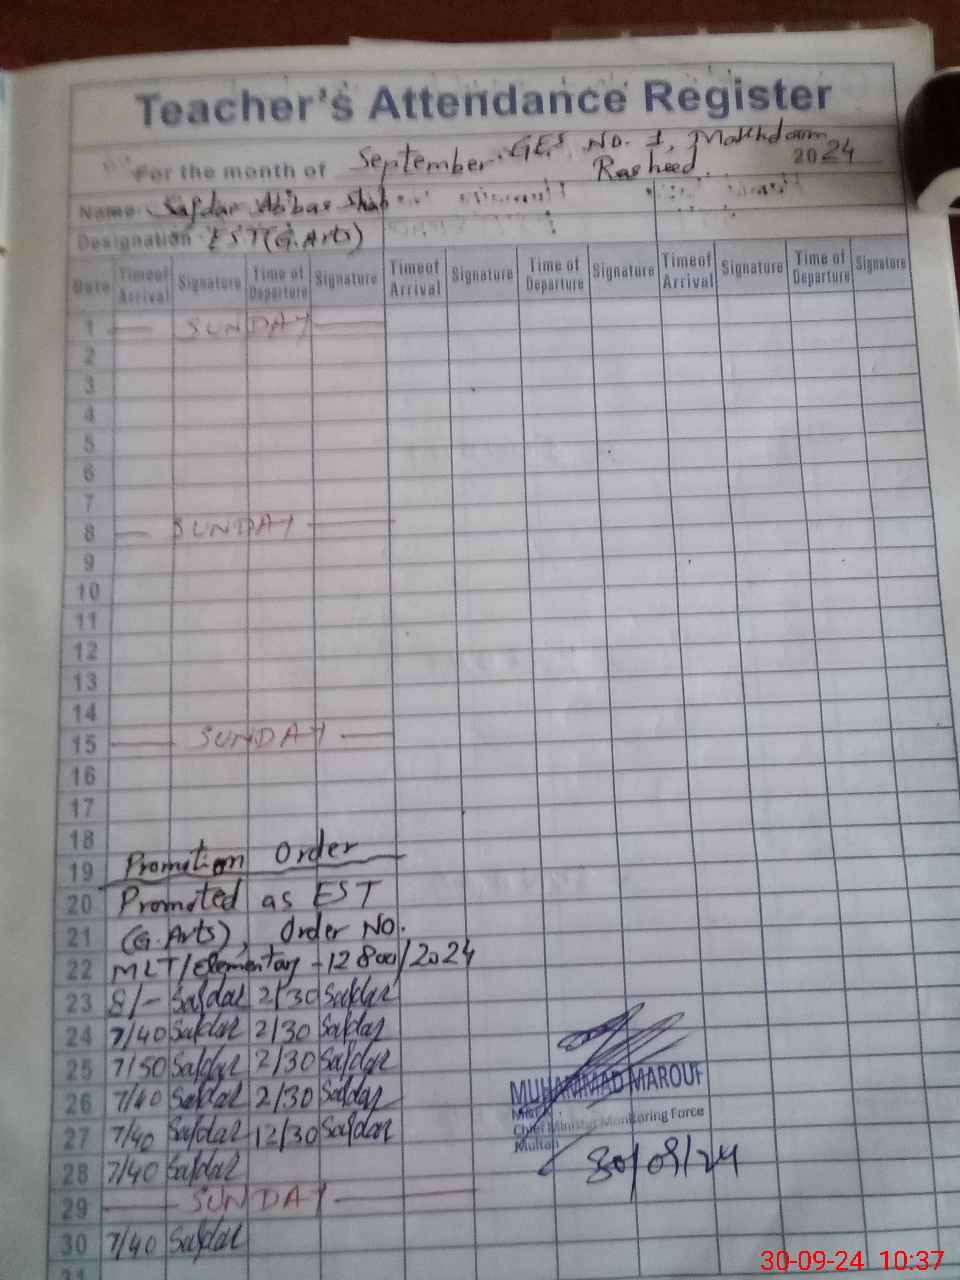 Teacher's Attendance Register
For the month of September. GES NO. 1, Makhdoom Rasheed. 2024
Name Safdar Abbas Shah
Designation EST (G.Arts)
Date Time of Arrival Signature Time of Departure Signature Time of Arrival Signature Time of Departure Signature Time of Arrival Signature Time of Departure Signature
1 SUNDAY
2
3
4
5
6
7
8 SUNDAY
9
10
11
12
13
14
15 SUNDAY
16
17
18
19 Promotion Order
20 Promoted as EST
21 (G.Arts), Order NO.
22 MLT/Elementary-12800/2024
23 8/- Safdar 2/30 Safdar
24 7/40 Safdar 2/30 Safdar
25 7/50 Safdar 2/30 Safdar
26 7/40 Safdar 2/30 Safdar
27 7/40 Safdar 12/30 Safdar
28 7/40 Safdar
29 SUNDAY
30 7/40 Safdar
31
MUHAMMAD MAROUF
Chief Minister Monitoring Force
Multan
30/09/24
30-09-24 10:37